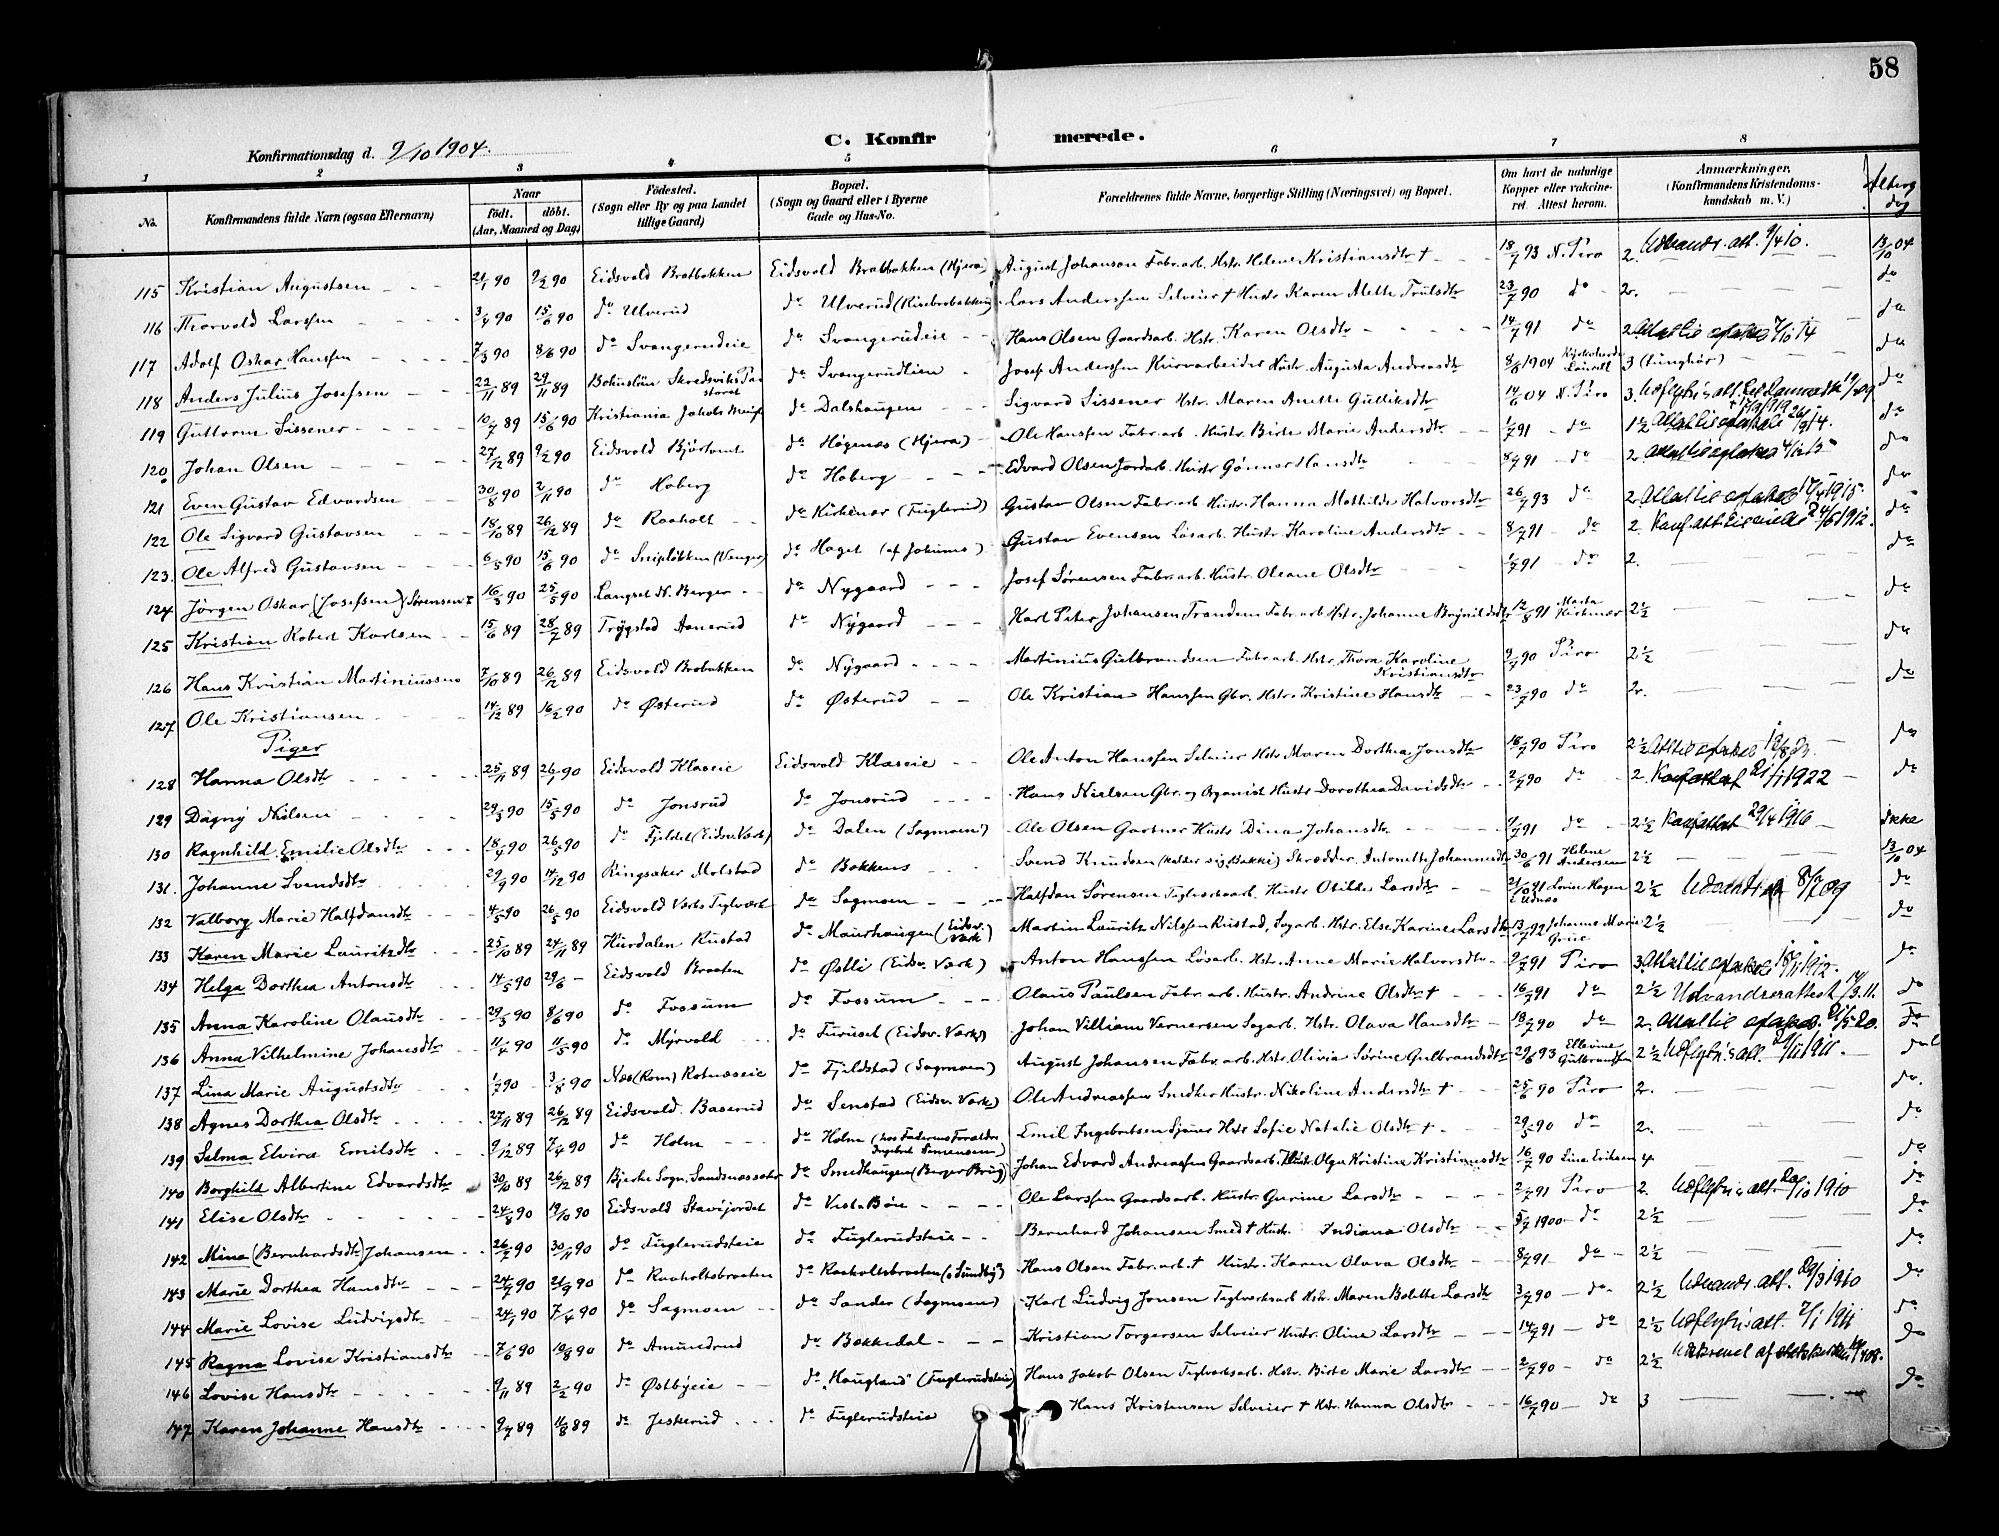 58
C. Konfirmerede.
Konfirmationsdag d. 9/10 1904.
1 2 3 4 5 6 7 8
No. Konfirmandens fulde Navn (ogsaa Efternavn) Naar født. døbt. (Aar, Maaned og Dag) Fødested. (Sogn eller By og paa Landet tillige Gaard) Bopæl. (Sogn og Gaard eller i Byerne Gade og Hus-No. Forældrenes fulde Navne, borgerlige Stilling (Næringsvei) og Bopæl. Om havt de naturlige Kopper eller vakcineret. Attest herom. Anmærkninger. (Konfirmandens Kristendomskundskab m. V.) Alterg dag
115 Kristian Augustsen 21/1 90 9/2 90 Eidsvold Brobakken Eidsvold Brobakken (Hjera) August Johanson Fabr. arb. Hstr. Helene Kristiansdtr † 18/7 93 N. Piro 2. Udvandr. att. 9/4 10. 13/10 04
116 Thorvald Larssen 3/4 90 15/6 90 do Ulverud do Ulverud Lars Anderssen Selveier † Hustr Karen Mette Trulsdtr 23/7 90 do 2. do
117 Adolf Oskar Hanssen 7/3 90 8/6 90 do Svangerudeie do Svangerudeie Hans Olsen Gaardsarb. Hstr. Karen Olsdtr 14/7 91 do 2. do
118 Anders Julius Josefsen 22/11 89 29/11 89 Bohuslän Skredsviks Pastorat do Svangerudlien Josef Anderssen Murarbeider Hustr. Augusta Andreasdtr 8/6 1904 3 (tunghør) do
119 Guttorm Sissener 10/7 89 15/6 90 Kristiania Jakobs Menigh do Dalshaugen Sigvard Sissener Hstr. Maren Anette Gulliksdtr 14/6 04 N. Piro 3. do
120 Johan Olsen 27/12 89 9/2 90 Eidsvold Bjørtomt do Høgenæs (Hjera) Ole Hanssen Fabr. arb. Hustr. Birte Marie Andersdtr 1/7 91 do 1½ do
121 Even Gustav Edvardsen 30/8 90 2/11 90 do Hoberg do Hoberg Edvard Olsen Jordarb. Hustr Gunnor Hansdtr 8/7 91 do 2. do
122 Ole Sigvard Gustavsen 18/10 89 26/12 89 do Raaholt do Kirkenær (Fuglerud) Gustav Olsen Fabr. arb Hustr. Hanna Mathilde Halvorsdtr 26/7 93 do 2. do
123. Ole Alfred Gustavsen 6/5 90 15/6 90 do Snipløkken (Venger) do Haget (af Jokums) Gustav Evensen Løsarb. Hustr Karoline Andersdtr 8/7 91 do 2. do
124 Jørgen Oskar (Josefsen) Sørensen 16/3 90 25/5 90 Langset N. Berger do Nygaard Josef Sørensen Fabr. arb. Hustr. Oleane Olsdtr 1/7 91 do 2. do
125 Kristian Robert Karlsen 15/6 89 28/7 89 Trygstad Aanerud do Nygaard Karl Peter Johansen Trandem Fabr arb Hstr. Johanne Brynildsdtr 12/8 91 Marta Kirkenær 2½ do
126 Hans Kristian Martiniussen 7/10 89 26/12 89 Eidsvold Brobakken do Nygaard Martinius Gulbrandsen Fabr. arb. Hstr. Thora Karoline Kristiansdtr 9/7 90 Piro 2½ do
127 Ole Kristiansen 14/12 89 16/2 90 do Østerud do Østerud Ole Kristian Hanssen Gbr. Hstr. Kristine Hansdtr 23/7 90 do 2. do
Piger
128 Hanna Olsdtr 25/11 89 26/1 90 Eidsvold Klaseie Eidsvold Klaseie Ole Anton Hanssen Selveier Hstr Maren Dorthea Jonsdtr 18/7 90 Piro 2½ do
129 Dagny Nielsen 29/3 90 15/5 90 do Jonsrud do Jonsrud Hans Nielsen Gbr. og Organist Hustr Dorothea Davidsdtr 2/7 90 do 2. 21/1 1922 do
130 Ragnhild Emilie Olsdtr 18/4 90 26/5 90 do Fjeldet (Eidsv. Værk) do Dalen (Sagmoen) Ole Olsen Gartner Hustr Dina Johansdtr 9/7 91 do 2½ 29/4 1916 ikke
131. Johanne Svendsdtr 29/9 90 14/12 90 Ringsaker Molstad do Bakkens Svend Knudsen (kalder sig Bakke) Skrædder. Antonette Johannesdtr 30/6 91 Helene Andersen 2½ 13/10 04
132 Valborg Marie Halfdansdtr 4/5 90 26/5 90 Eidsvold Værks Teglværk do Sagmoen Halfdan Sørensen Teglverksarb. Hustr Otilde Larsdtr 21/10 91 Lovise Hagen 2½ 8/2 09 do
133 Karen Marie Lauritzdtr 25/10 89 24/11 89 Hurdalen Rustad do Maurhaugen (Eidsv. Værk) Martin Lauritz Nilssen Rustad, Sagarb. Hstr. Else Karine Larsdtr 13/7 92 Johanne Marie Grue 2½ do
134 Helga Dorthea Antonsdtr 14/5 90 29/6 Eidsvold Braaten do Østli (Eidsv. Værk) Anton Hanssen Løsarb. Hstr. Anne Marie Halvorsdtr 9/7 91 Piro 3. do
135 Anna Karoline Olausdtr 29/3 90 8/6 90 do Fossum do Fossum Olaus Paulsen Fabr. arb. Hustr. Andrine Olsdtr † 16/7 91 do 2½ Udvandrerattest 14/3. 11. do
136 Anna Vilhelmine Johansdtr 11/4 90 11/5 90 do Myrvold do Furuset (Eidsv. Værk) Johan Villiam Vernersen Sagarb. Hstr. Olava Hansdtr 18/7 90 do 2. do
137 Lina Marie Augustsdtr 1/7 90 3/8 90 Næs (Rom.) Rotnæseie do Fjeldstad (Sagmoen) August Johansen Fabr. arb. Hstr. Olivia Sørine Gulbrandsdtr 29/6 93 Ellevine Gulbrandsen 2½ Udflytn.s att. do
138 Agnes Dorthea Olsdtr 27/11 89 26/12 89 Eidsvold Baserud do Senstad (Eidsv. Værk) Ole Andreassen Snedker Hustr. Nikoline Andersdtr † 25/6 90 Piro 2. do
139 Selma Elvira Emilsdtr 9/12 89 7/4 90 do Holm do Holm (hos Faderens Forældre) Emil Ingebretsen Tjener Hstr Sofie Natalie Olsdtr † 29/5 90 do 2. do
140 Borghild Albertine Edvardsdtr 30/10 89 26/12 89 Bjerke Sogn. Sandsnæssæter do Smedhaugen (Berger Brug) Johan Edvard Andreassen Gaardsarb. Hustr. Olga Kristine Kristiansdtr 16/7 90 Lina Eriksen 4 do
141 Elise Olsdtr 24/8 90 19/10 90 Eidsvold Stavfjordet do Vest. Bøn Ole Larssen Gaardsarb. Hustr. Gurine Larsdtr 2/7 91 Piro 2. Udflytn.s att. 20/10 1910 do
142 Mina (Bernhardsdtr) Johansen 26/7 90 30/11 90 do Fuglerudsteie do Fuglerudsteie Bernhard Johansen Smed † Hustr. Indiana Olsdtr 5/7 1900 do 2½ do
143 Marie Dorthea Hansdtr 24/7 90 21/9 90 do Raaholtsbraaten do Raaholtsbraaten ("Sundby") Hans Olsen Fabr. arb. † Hustr. Karen Olava Olsdtr 8/7 91 do 2½ do
144 Marie Lovise Ludvigsdtr 24/1 90 7/4 90 do Sagmoen do Sander (Sagmoen) Karl Ludvig Jonsen Teglverksarb Hstr. Maren Bolette Larsdtr 3/7 90 do 2½ Udvandr. att. 29/3 1910 do
145 Ragna Lovise Kristiansdtr 7/6 90 10/8 90 do Amundrud do Bekkedal Kristian Torgersen Selveier Hustr. Oline Larsdtr 14/7 91 do 2½ Udflytn.s att. 7/1 1911 do
146 Lovise Hansdtr 9/11 89 2/2 90 do Østbyeie do "Haugland" (Fuglerudsteie) Hans Jakob Olsen Teglverksarb. Hstr. Birte Marie Larsdtr 2/7 90 do 2½ do
147 Karen Johanne Hansdtr 9/7 89 11/8 89 do Jeskerud do Fuglerudsteie Hans Kristensen Selveier † Hstr. Hanna Olsdtr 16/7 90 do 3 do